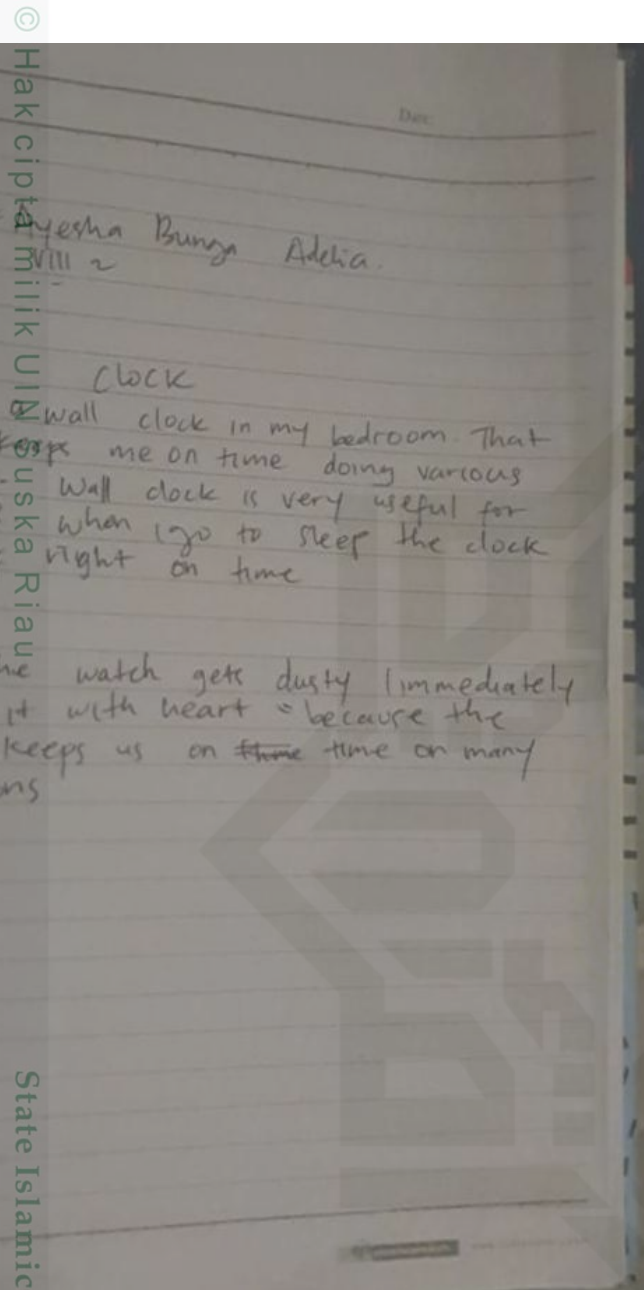 © Hak cipta milik UIN Suska Riau
State Islamic
Date:
Ayesha Bunga Adelia.
VIII 2
Clock
a wall clock in my bedroom. That
keeps me on time doing various
Wall clock is very useful for
when I go to sleep the clock
right on time
watch gets dusty I immediately
it with heart because the
keeps us on time on many